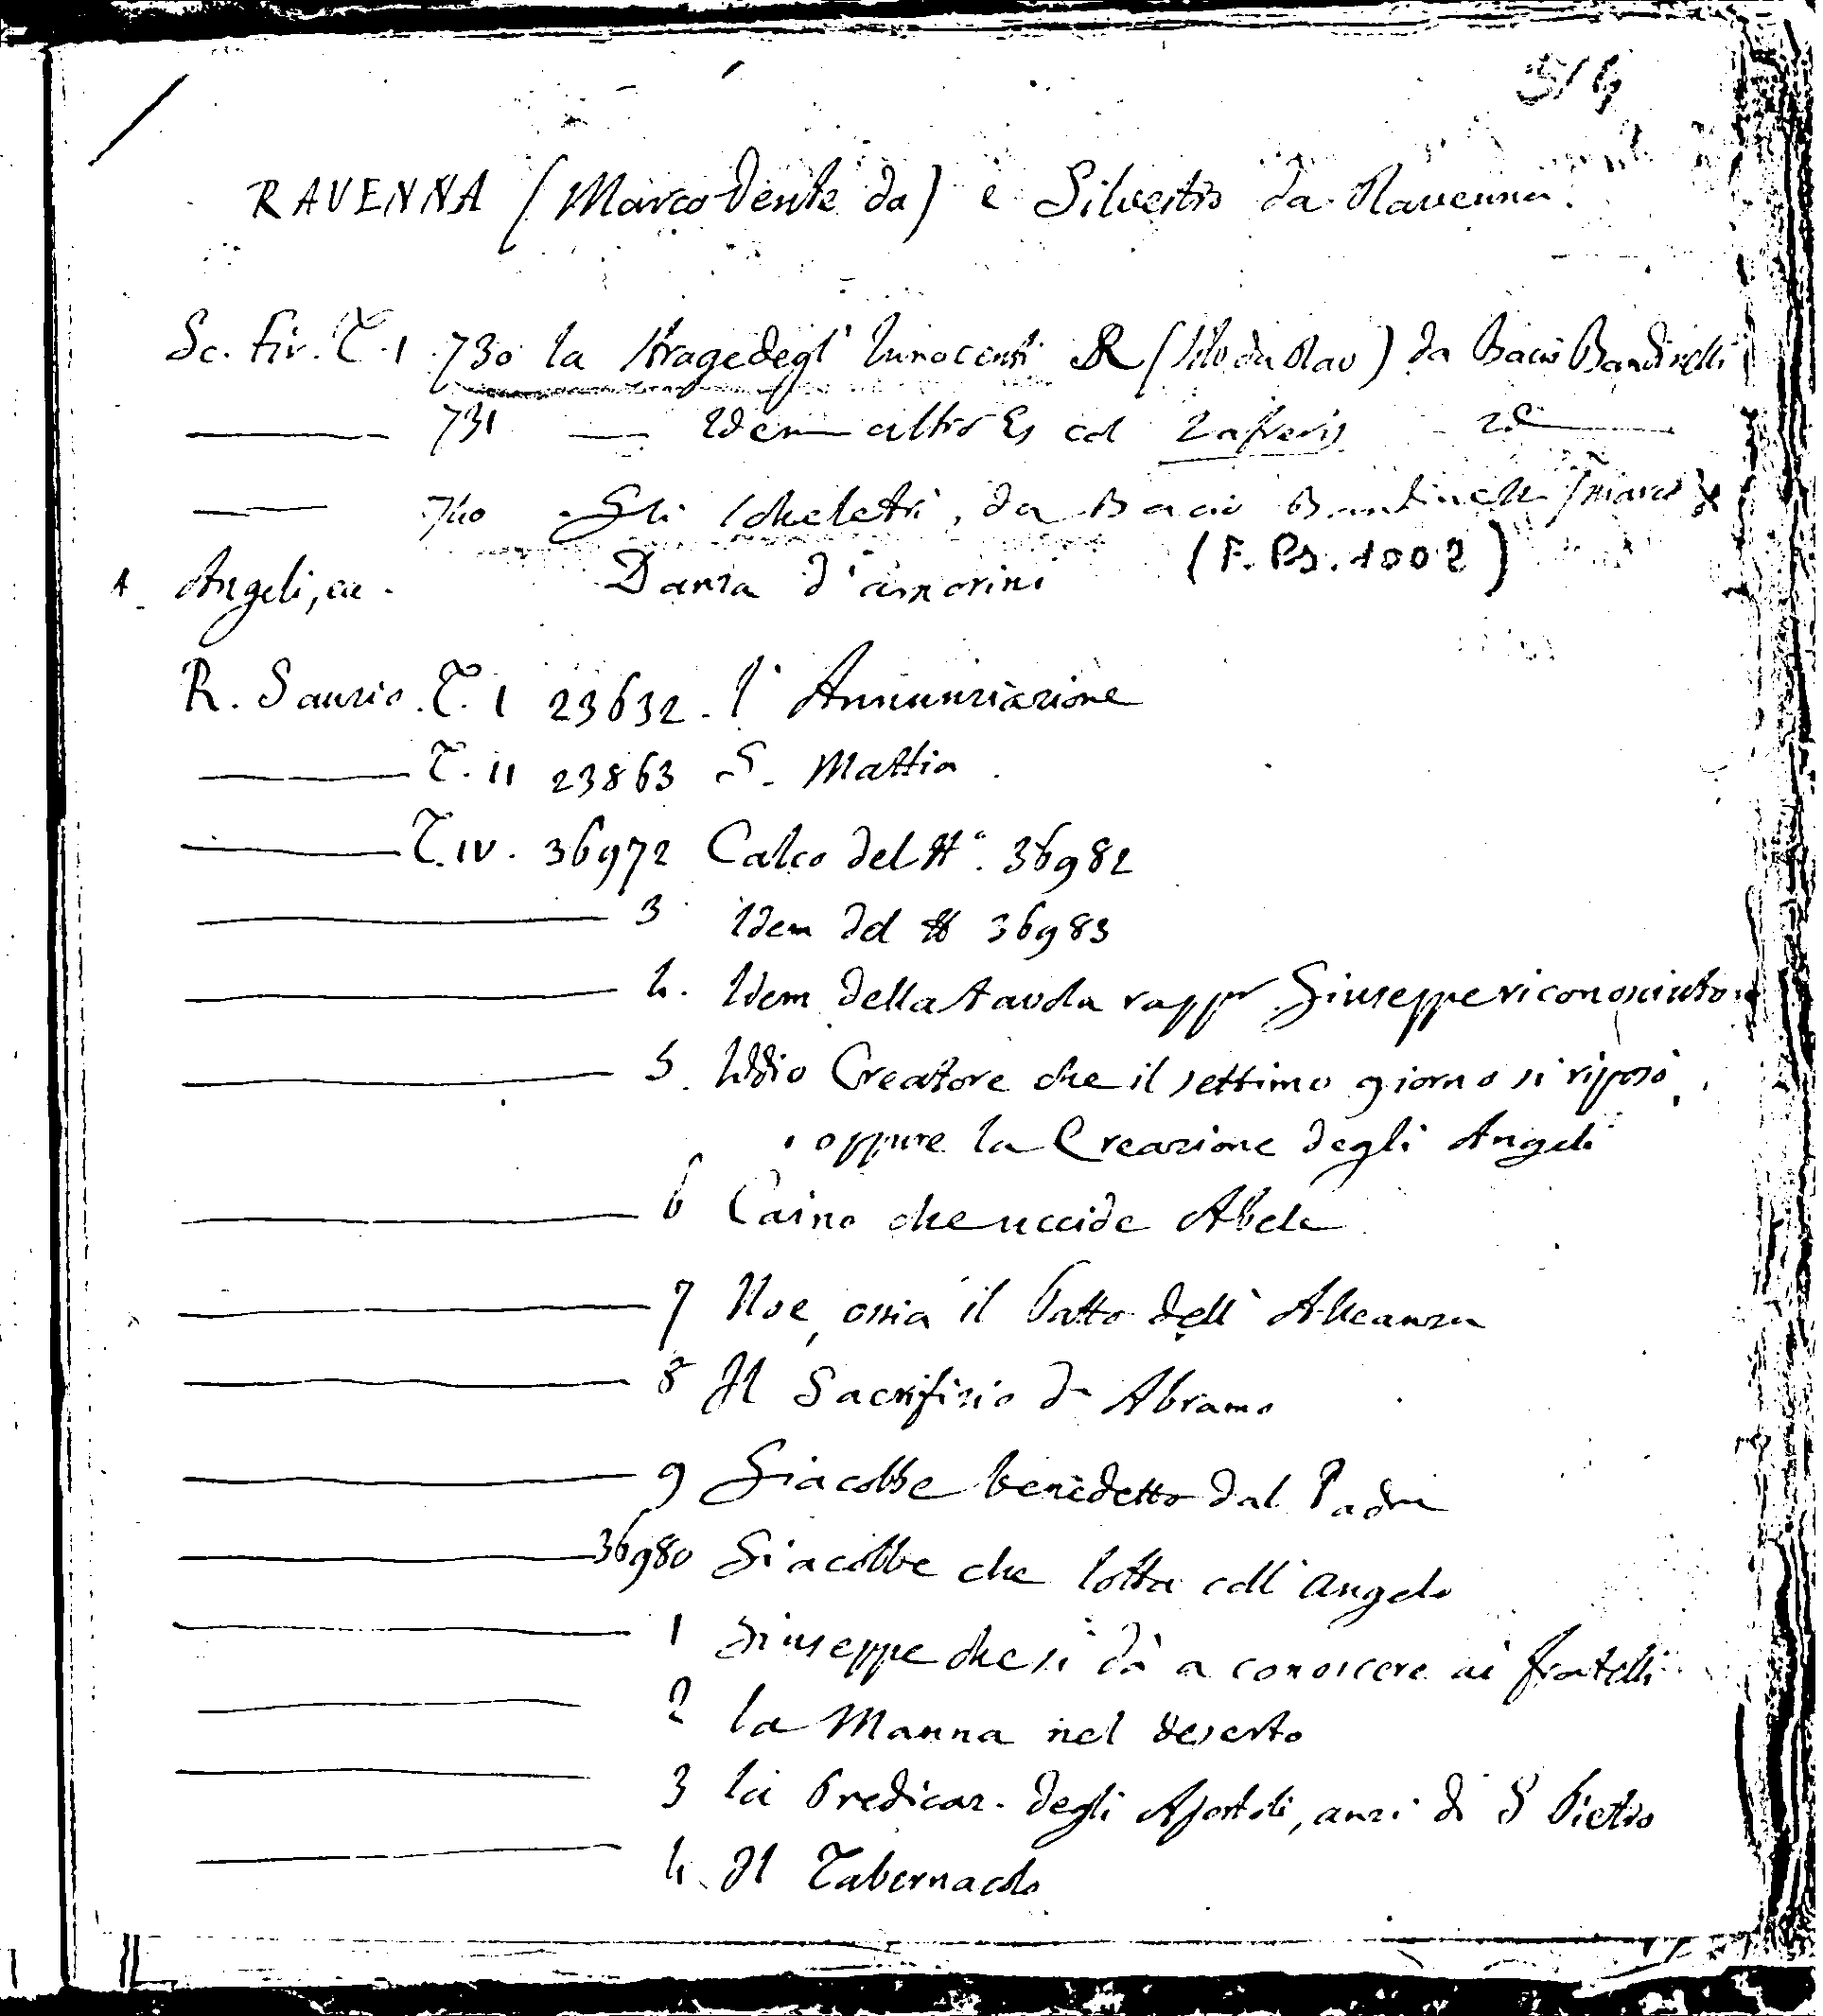 514
RAVENNA (Marco Dente da) e Silvestro da Ravenna.
Sc. Fir. T. I 730 la Strage degl' Innocenti R (Silv da Rav) da Bacio Bandinelli
731 — Idem altro Es col Lafreris
740 Gli Scheletri, da Bacio Bandinelli (Marco
A Angeli, ca. Danza d'amorini (F. Ps. 1002)
R. Sanzio. T. I 23632. l'Annunziazione
T. II 23863 S. Mattia
T. IV. 36972 Calco del N°. 36982
3 Idem del N 36983
4. Idem della tavola rappr Giuseppe riconosciuto
5. Iddio Creatore che il settimo giorno si riposò,
oppure la Creazione degli Angeli
6 Caino che uccide Abele
7 Noe, ossia il Patto dell' Alleanza
8 Il Sacrifizio d' Abramo
9 Giacobbe benedetto dal Padre
36980 Giacobbe che lotta coll' angelo
1 Giuseppe che si dà a conoscere ai fratelli
2 la Manna nel deserto
3 la Predicaz. degli Apostoli, anzi di S Pietro
4. Il Tabernacolo